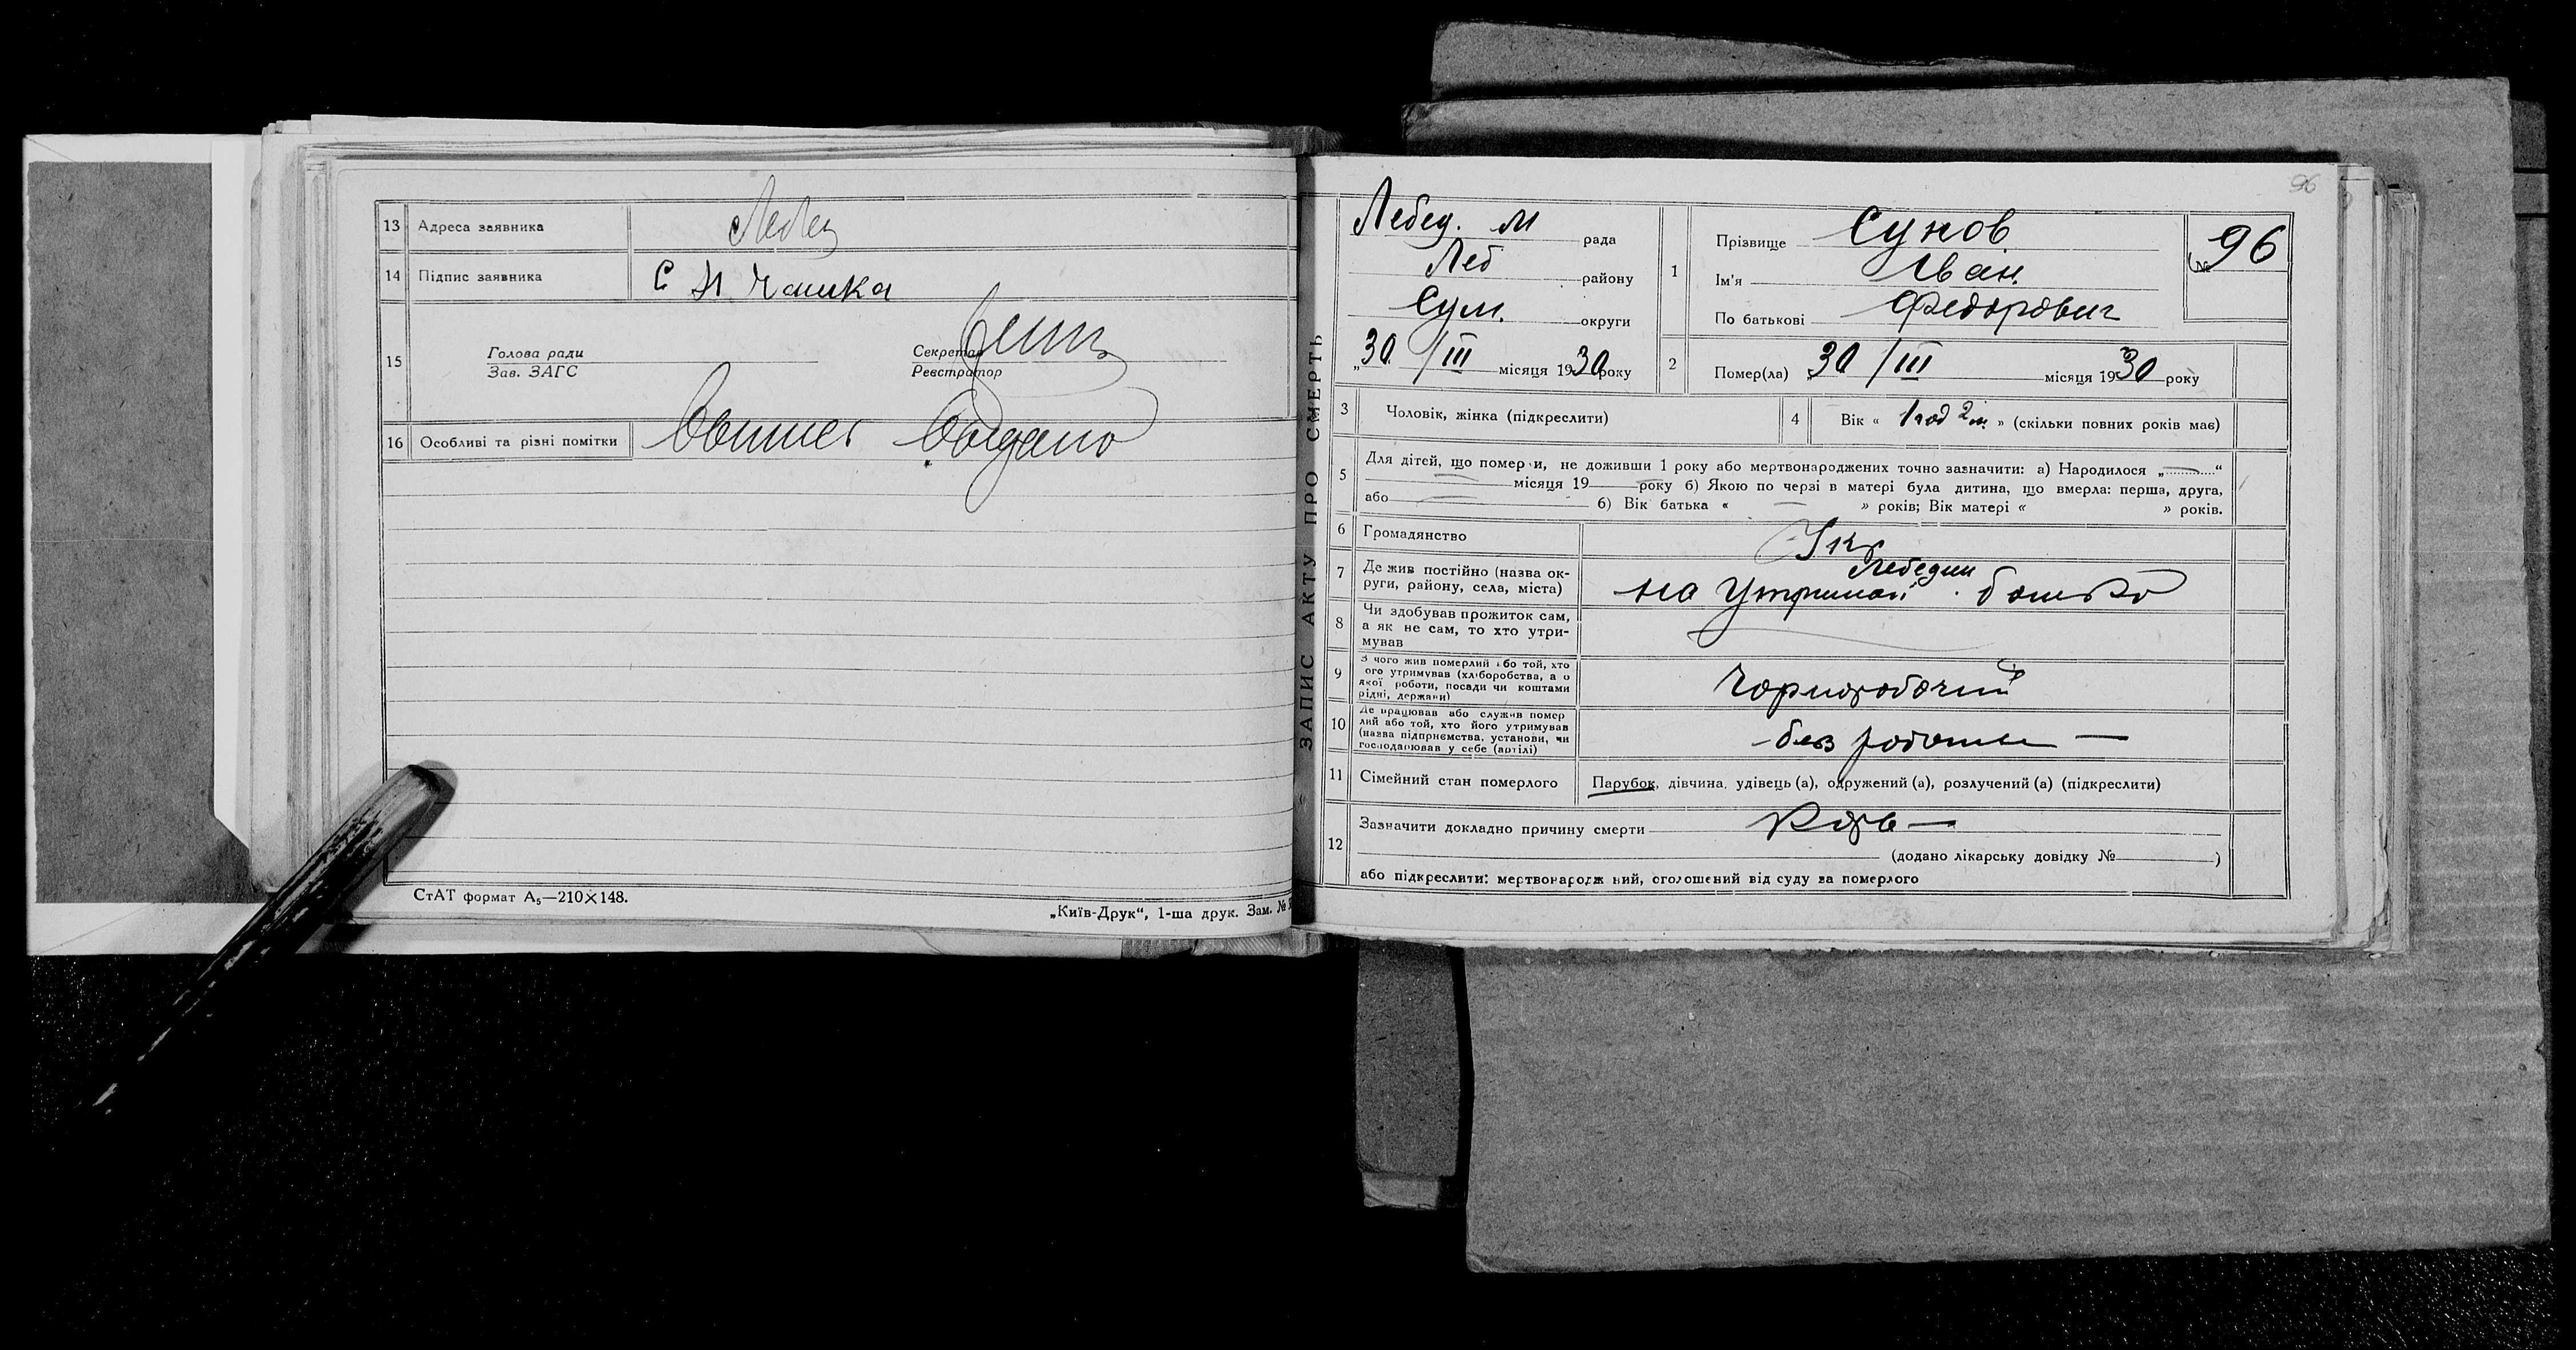 13 Адреса заявника Лебед
14 Підпис заявника С Н Чашка
15 Голова ради
Зав. ЗАГС
Секретар
Реєстратор
16 Особливі та різні помітки
СтАТ формат А₅—210×148.
„Київ-Друк“, 1-ша друк. Зам. №
ЗАПИС АКТУ ПРО СМЕРТЬ
96
Лебед. М рада
Леб району
Сум. округи
„30 /III місяця 1930 року
1 Прізвище Сунов
Ім'я Іван
По батькові Федорович
№ 96
2 Помер(ла) 30 /III місяця 1930 року
3 Чоловік, жінка (підкреслити)
4 Вік « 1 год 2 м. » (скільки повних років має)
5 Для дітей, що померли, не доживши 1 року або мертвонароджених точно зазначити: а) Народилося „ — “
— місяця 19 — року б) Якою по черзі в матері була дитина, що вмерла: перша, друга,
або — б) Вік батька « — » років; Вік матері « » років.
6 Громадянство Укр
7 Де жив постійно (назва округи, району, села, міста) Лебедин
на утриман батька
8 Чи здобував прожиток сам,
а як не сам, то хто утри-
мував
9 З чого жив померлий або той, хто
його утримував (хліборобства, а о
якої роботи, посади чи коштами
рідні, держави)
Чорноробочий
10 Де працював або служив помер
лий або той, хто його утримував
(назва підприємства, установи, чи
господарював у себе (артілі)
без роботи —
11 Сімейний стан померлого Парубок, дівчина, удівець (а), одружений (а), розлучений (а) (підкреслити)
12 Зазначити докладно причину смерти Кор —
(додано лікарську довідку № )
або підкреслити: мертвонародж ний, оголошений від суду за померлого